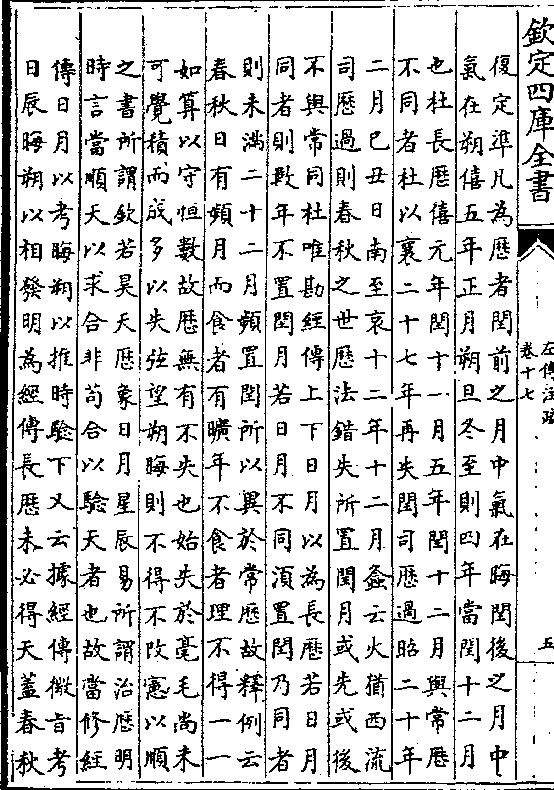 欽定四庫全書
左傳注疏
卷十七
五
復定準凡為歴者閏前之月中氣在晦閏後之月中
氣在朔僖五年正月朔旦冬至則四年當閏十二月
也杜長歴僖元年閏十一月五年閏十二月與常歴
不同者杜以襄二十七年再失閏司歴過昭二十年
二月己丑日南至哀十二年十二月螽云火猶西流
司歴過則春秋之世歴法錯失所置閏月或先或後
不與常同杜唯勘經傳上下日月以為長歴若日月
同者則數年不置閏月若日月不同須置閏乃同者
則未滿二十二月頻置閏所以異於常歴故釋例云
春秋日有頻月而食者有曠年不食者理不得一一
如算以守恒數故歴無有不失也始失於毫毛尚未
可覺積而成多以失弦望朔晦則不得不改憲以順
之書所謂欽若昊天歴象日月星辰易所謂治歴明
時言當順天以求合非苟合以驗天者也故當修經
傳日月以考晦朔以推時驗下又云據經傳微旨考
日辰晦朔以相發明為經傳長歴未必得天蓋春秋